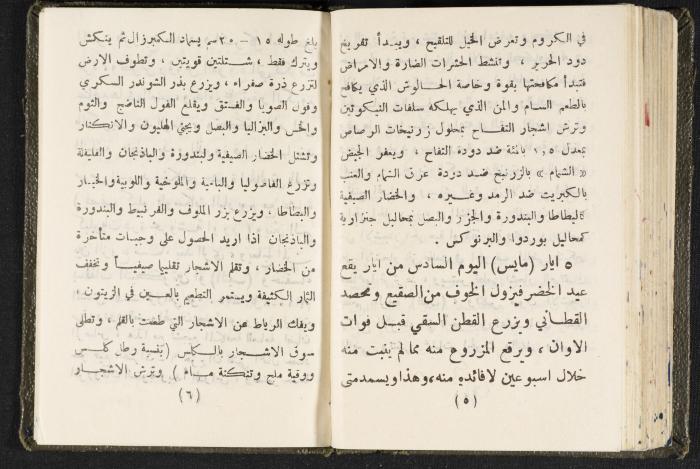 في الكروم وتعرض الخيل للتلقيح ، ويبدأ تفريخ
دود الحرير ، وتنشط الحشرات الضارة والامراض
فتبدأ مكافحتها بقوة وخاصة الحالوش الذي يكافح
بالطعم السام والمن الذي يهلكه سلفات النيكوتين
وترش اشجار التفاح بمحلول زرنيخات الرصاص
بمعدل ١,٥ بالمئة ضد دودة التفاح ، ويعفر الجبض
« الشمام » بالزرنيخ ضد دودة عرق الشمام والعنب
بالكبريت ضد الرمد وغيره ، والخضار الصيفية
كالبطاطا والبندورة والجزر والبصل بمحاليل جنزارية
كمحاليل بوردوا والبرنوكس .
٥ ايار (مايس) اليوم السادس من ايار يقع
عيد الخضر فيزول الخوف من الصقيع ومحصد
القطاني ويزرع القطن السقي قبل فوات
الاوان ، ويرقع المزروع منه مما لم ينبت منه
خلال اسبوعين لافائده منه، وهذا ويسمدمتى
(٥)
بلغ طوله ١٥ – ٢٠سم بسماد الكمبرزال ثم ينكش
ويترك فقط ، شتلتين قويتين ، وتطوف الارض
لتزرع ذرة صفراء ، ويزرع بذر الشوندر السكري
وفول الصويا والفستق ويقلع الفول الناضج والثوم
والخس والبزاليا والبصل ويجنى الهليون والانكنار
وتشتل الخضار الصيفية والبندورة والباذنجان والفليفلة
وتزرع الفاصوليا والبامية والملوخية واللوبية والخيار
والبطاطا ، ويزرع بزر الملفوف والقرنبيط والبندورة
والباذنجان اذا اريد الحصول على وجبات متأخرة
من الخضار ، وتقلم الاشجار تقليما صيفياً وتخفف
الثمار الكثيفة ويستمر التطعيم بالعين في الزيتون ،
ويفك الرباط عن الاشجار التي طعمت بالقلم ، وتطلى
سوق الاشجار بالكلس (بنسبة رطل كلس
ووقية ملح وتنكة ماء ) وترش الاشجار
(٦)